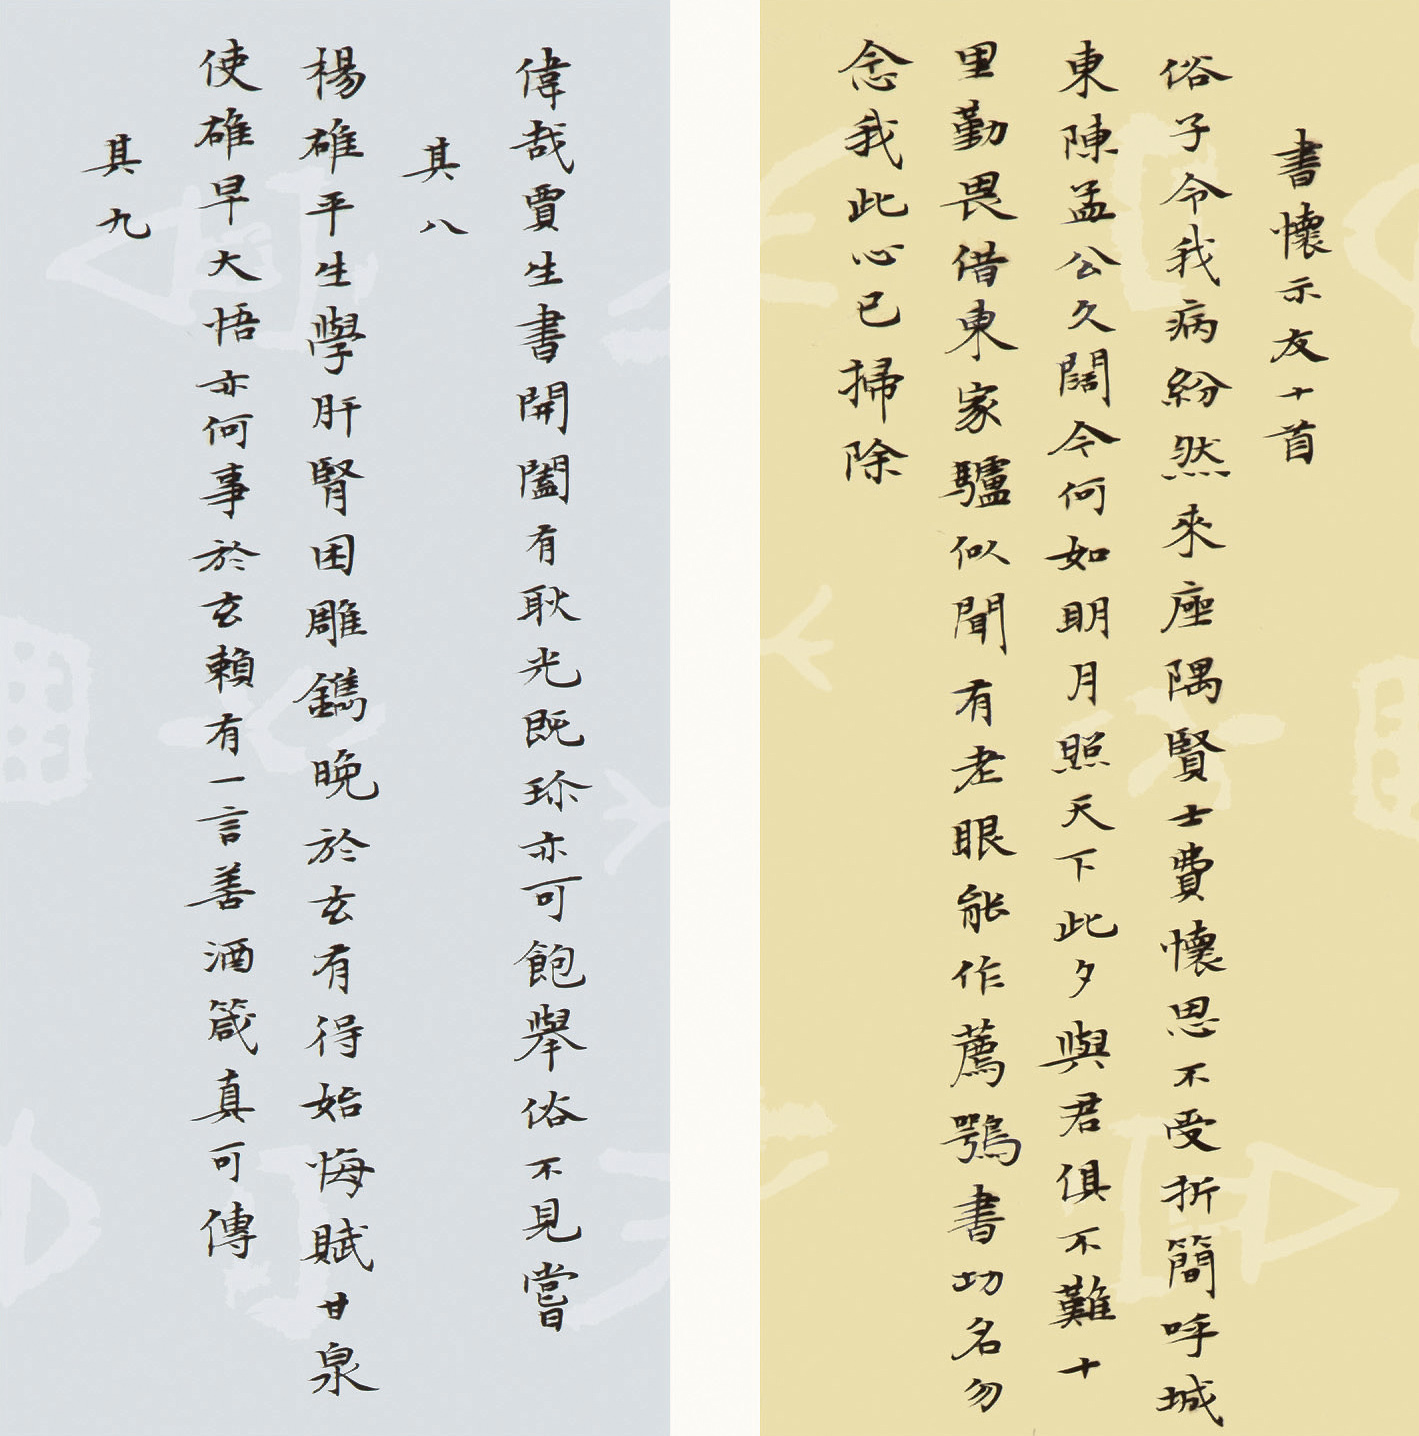 書懷示友十首
俗子令我病紛然來座隅賢士費懷思不受折簡呼城
東陳孟公久闊今何如明月照天下此夕與君俱不難十
里勤畏借東家驢似聞有老眼能作薦鶚書功名勿
念我此心已掃除
偉哉賈生書開闔有耿光既珍亦可飽舉俗不見嘗
其八
楊雄平生學肝腎困雕鐫晚於玄有得始悔賦甘泉
使雄早大悟亦何事於玄賴有一言善酒箴真可傳
其九